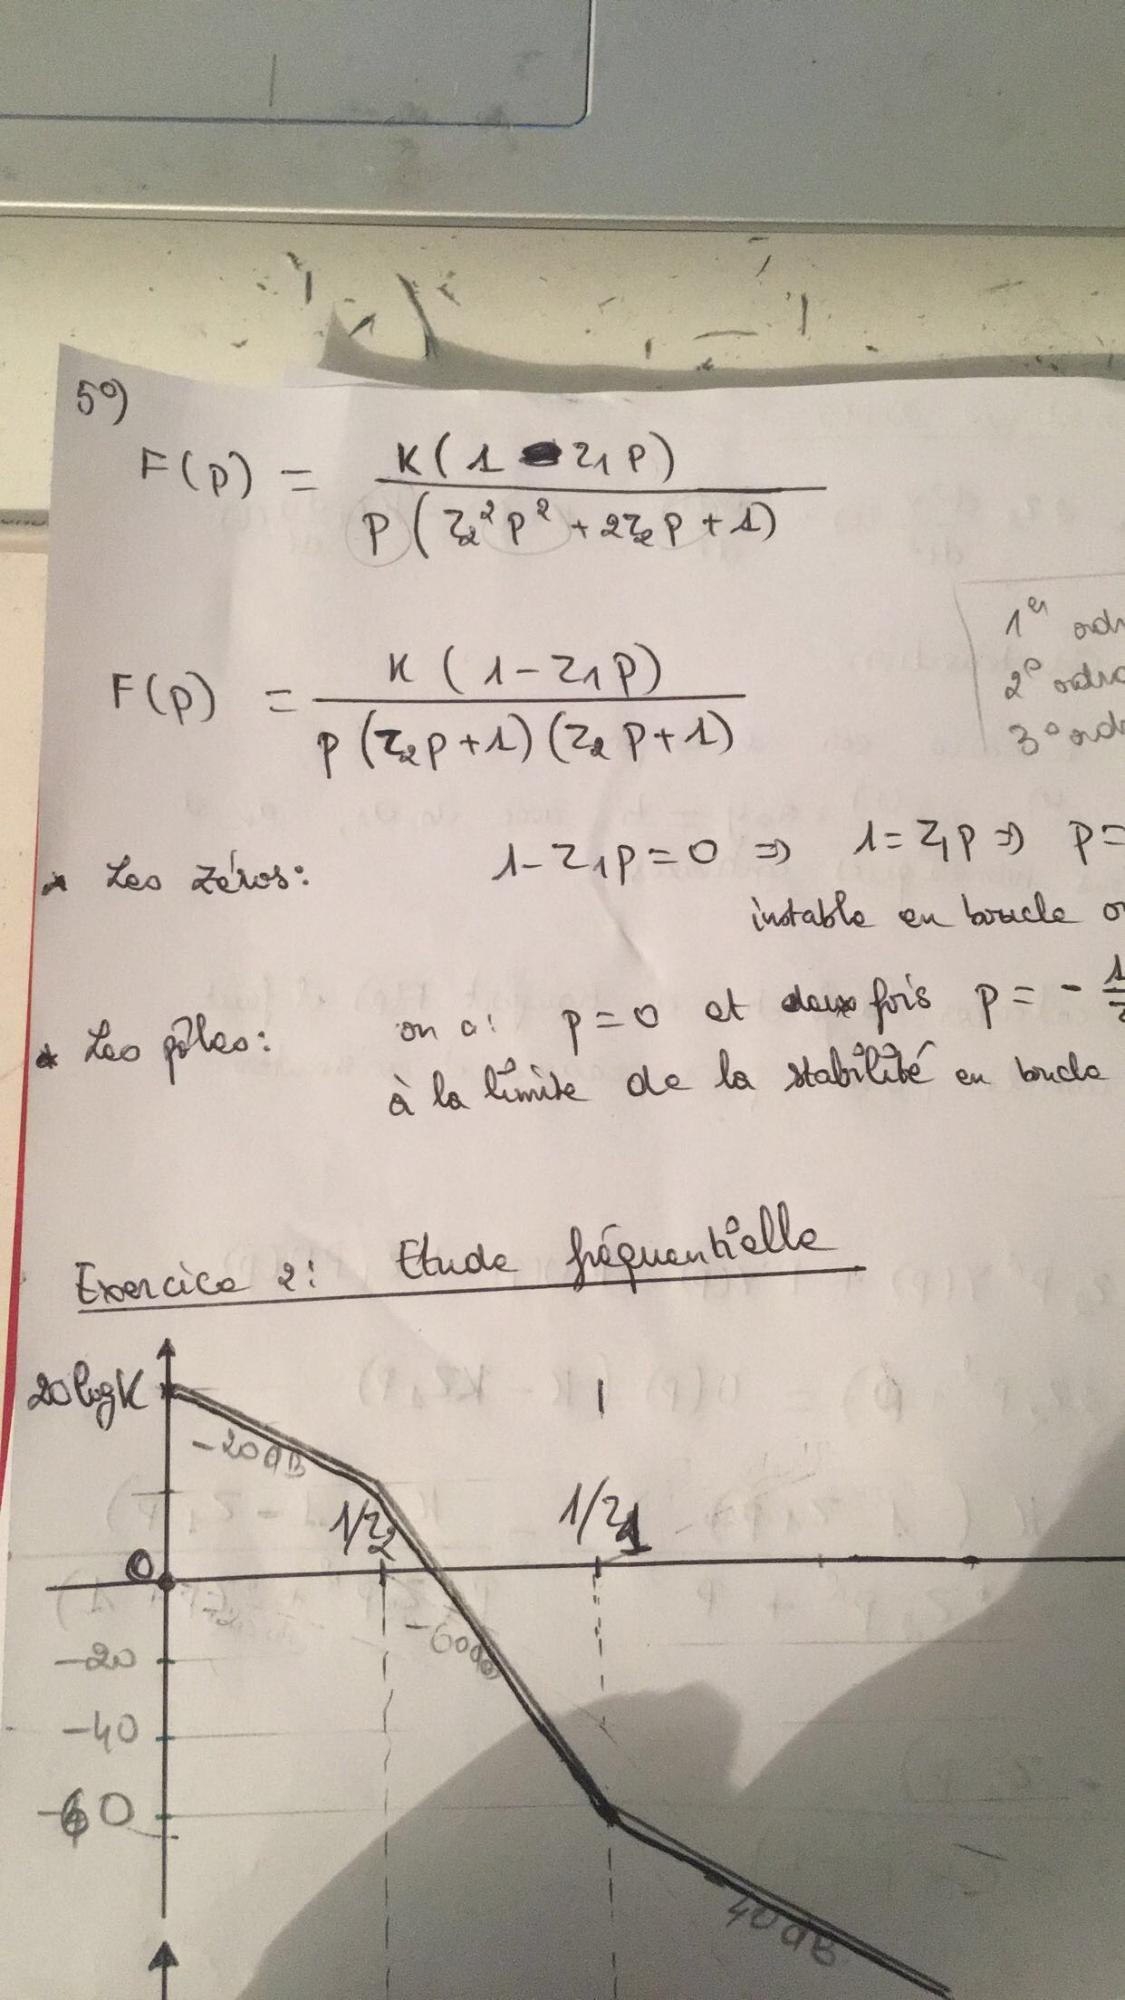 5°)
F(p) = K(1 - τ₁p) / p(τ₂²p² + 2τ₂p + 1)
F(p) = K(1 - τ₁p) / p(τ₂p + 1)(τ₂p + 1)
1er ordr
2° ordre
3° ord
* Les zéros: 1 - τ₁p = 0 ⇒ 1 = τ₁p ⇒ p =
instable en boucle o
* Les pôles: on a: p = 0 et deux fois p = - 1
à la limite de la stabilité en boucle
Exercice 2: Etude fréquentielle
20logK
-20dB
1/τ₂
1/τ₁
0
-60dB
-20
-40
-60
-40dB